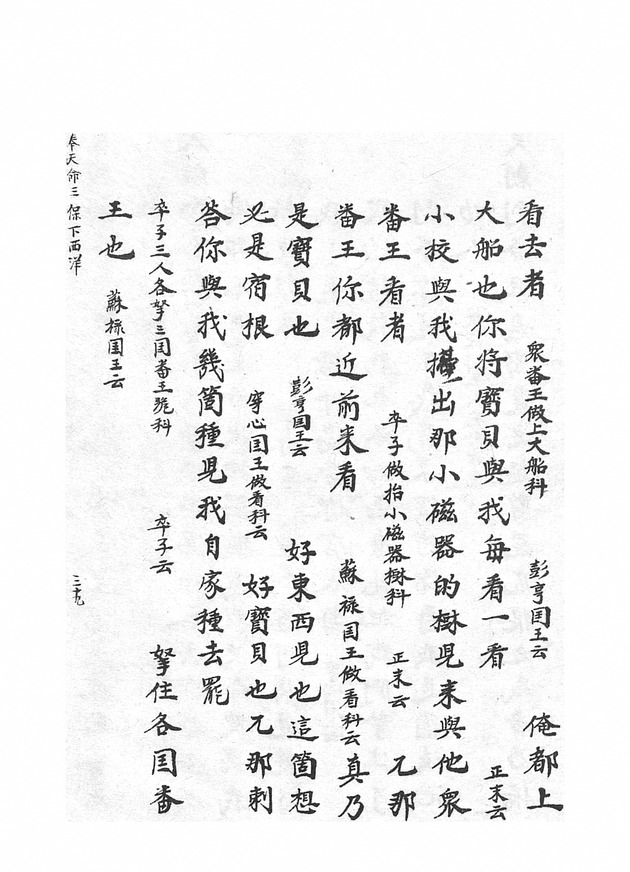 看去者 衆畨王做上大船科 彭亨囯王云 俺都上
大船也你将寶貝與我每看一看 正末云
小校與我擡出那小磁器的樹児来與他衆
畨王看者 卒子做抬小磁器樹科 正末云 兀那
畨王你都近前来看 蘇禄囯王做看科云 真乃
是寶貝也 彭亨囯王云 好東西児也這箇想
必是宿根 穿心囯王做看科云 好寶貝也兀那刺
荅你與我幾箇種児我自家種去罷
卒子三人各拏三囯畨王跪科 卒子云 拏住各囯畨
王也 蘇禄囯王云
奉天命三保下西洋 三十九